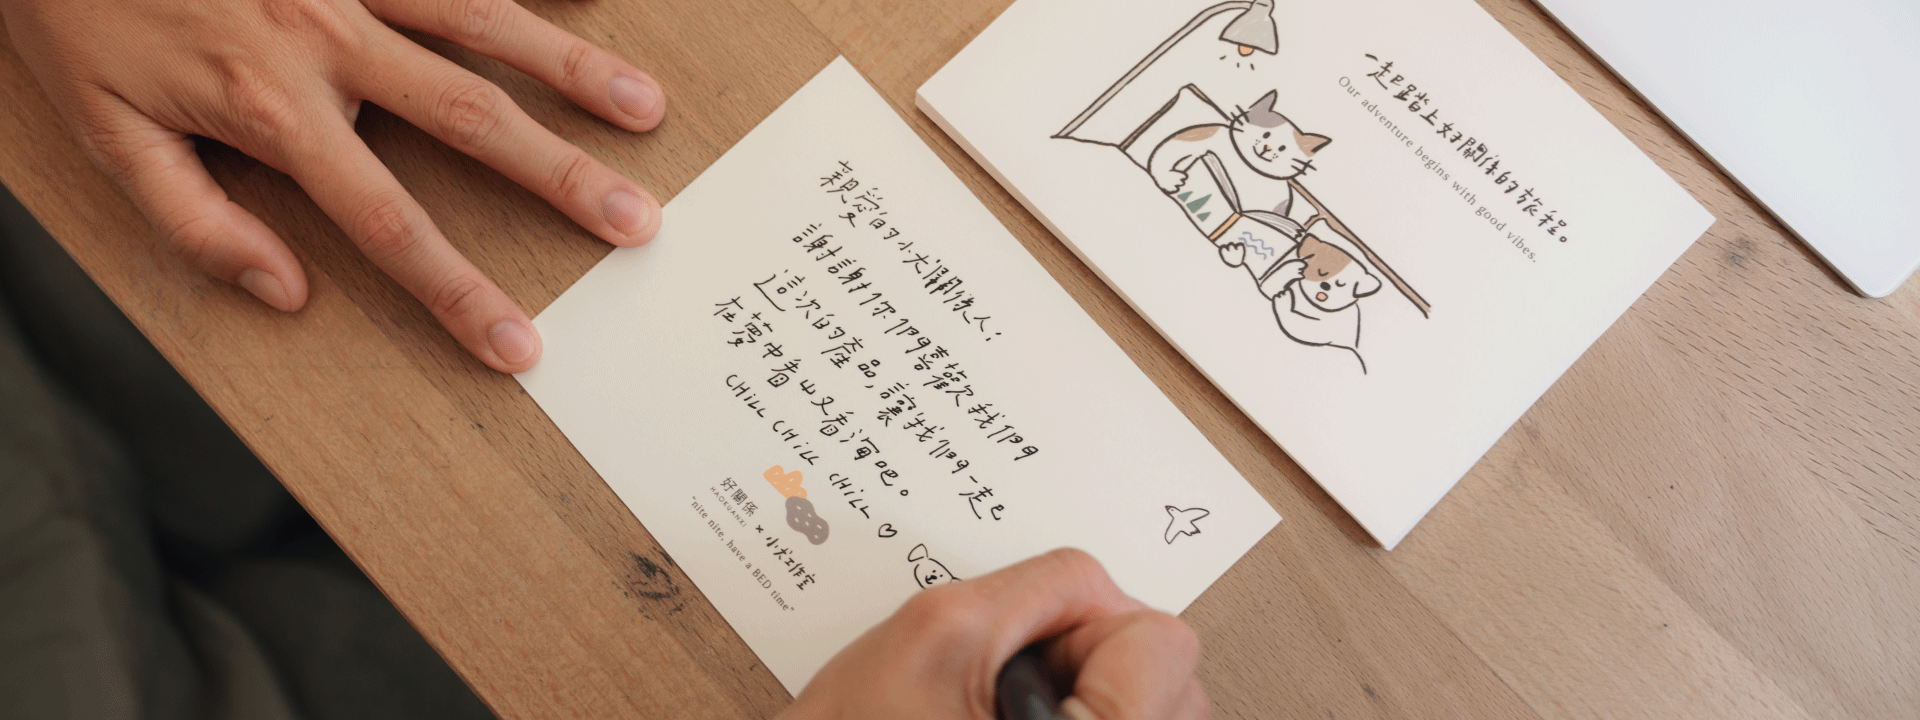 親愛的小犬關係人：
謝謝你們喜歡我們
這次的產品，讓我們一起
在夢中看山又看海吧。
CHILL CHILL CHILL ♡
好關係
HAOKUANXI
×
小犬工作室
"nite nite, have a BED time"
一起踏上好關係的旅程。
Our adventure begins with good vibes.